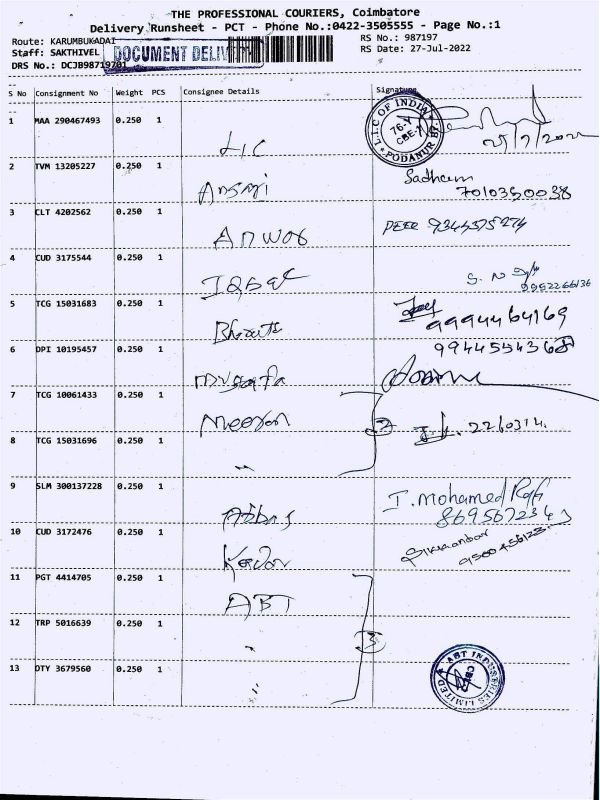 THE PROFESSIONAL COURIERS, Coimbatore
Delivery Runsheet - PCT - Phone No.:0422-3505555 - Page No.:1
Route: KARUMBUKADAI RS No.: 987197
Staff: SAKTHIVEL RS Date: 27-Jul-2022
DOCUMENT
DRS No.: DCJB98719701
S No Consignment No Weight PCS Consignee Details Signature
1 MAA 290467493 0.250 1 LIC
L.I.C OF INDIA
76-Y
CBE-1
PODANUR
2 TVM 13205227 0.250 1 Ansari Sadham
7010350038
3 CLT 4202562 0.250 1 Anwar PEER 9344575274
4 CUD 3175544 0.250 1 Iqbal
9952266136
5 TCG 15031683 0.250 1 Bharath
9994464169
6 DPI 10195457 0.250 1 Mustafa
7 TCG 10061433 0.250 1 Meeran 2
8 TCG 15031696 0.250 1 "
9 SLM 300137228 0.250 1 Abbas I. Mohamed Rafi
8695672343
10 CUD 3172476 0.250 1 Kadar Sikkandar
9500456123
11 PGT 4414705 0.250 1 ABT
12 TRP 5016639 0.250 1 " 3
13 DTY 3679560 0.250 1 "
ABT INDUSTRIES LIMITED
CBE